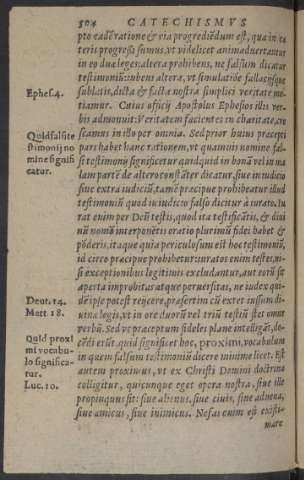 504 CATECHISMVS
pto eadē ratione & via progrediēdum est, qua in ca
teris progressi sumus, vt videlicet animaduertantur
in eo duæ leges; altera prohibens, ne falsum dicatur
testimoniū: iubens altera, vt simulatiōe fallacijsque
Ephes. 4.
sublatis, dicta & facta nostra simplici veritate me
tiamur. Cuius officij Apostolus Ephesios illis ver
bis admonuit: Veritatem facientes in charitate, cre
Quid falsi te
scamus in illo per omnia. Sed prior huius præcepti
stimonij no
pars habet hanc rationem, vt quamuis nomine fal-
mine signifi
si testimonij significetur quidquid in bonā vel in ma
catur.
lam partē de altero constāter dicatur, siue in iudicio
siue extra iudiciū, tamē præcipue prohibeatur illud
testimoniū quod in iudicio falso dicitur à iurato. Iu
rat enim per Deū testis, quod ita testificātis, & diui
nū nomē interponētis oratio plurimū fidei habet &
pōderis, itaque quia periculosum est hoc testimoniū,
id circo præcipue prohibetur: iuratos enim testes, ni-
si exceptionibus legitimis excludantur, aut eorū sit
aperta improbitas atque peruersitas, ne iudex qui-
Deut. 14.
dē ipse potest reijcere, præsertim cū extet iussum di
Matt 18.
uina legis, vt in ore duorū vel triū testiū stet omne
verbū. Sed vt præceptum fideles plane intelligāt, do-
Quid proxi
cēdi erūt, quid significet hoc, proximi, vocabulum
mi vocabu-
in quem falsum testimoniū dicere minime licet. Est
lo significa-
autem proximus, vt ex Christi Domini doctrina
tur.
colligitur, quicunque eget opera nostra, siue ille
Luc. 10.
propinquus sit: siue alienus, siue ciuis, siue aduena,
siue amicus, siue inimicus. Nefas enim est existi-
mare